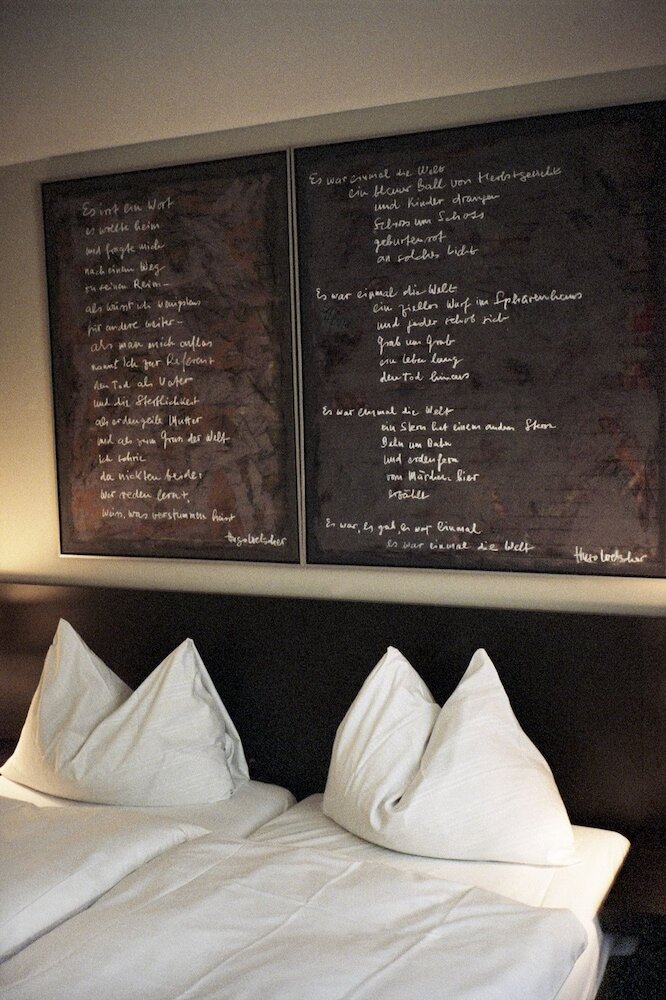 Es irrt ein Wort
es wollte heim
und fragte mich
nach einem Weg
zu seinem Reim –
als wüsst ich wenigstens
für andre weiter –
als man mich auflas
nannt ich zur Referenz
den Tod als Vater
und die Sterblichkeit
als erdengeile Mutter
und als zum Gruss der Welt
ich schrie
da nickten beide:
wer reden lernt,
weiss, was verstummen heisst
Hugo Loetscher
Es war einmal die Welt
ein blauer Ball von
und Kinder drangen
Schoss um Schoss
geburtenrot
an solches Licht
Es war einmal die Welt
ein zielloser Wurf im Sphärenhaus
und jeder schob sich
Grab um Grab
ein Leben lang
dem Tod hinaus
Es war einmal die Welt
ein Stern hat einem andern Stern
Bahn um Bahn
und erdenfern
vom Märchen hier
erzählt
Es war, es gab, es war einmal
es war einmal die Welt
Hugo Loetscher